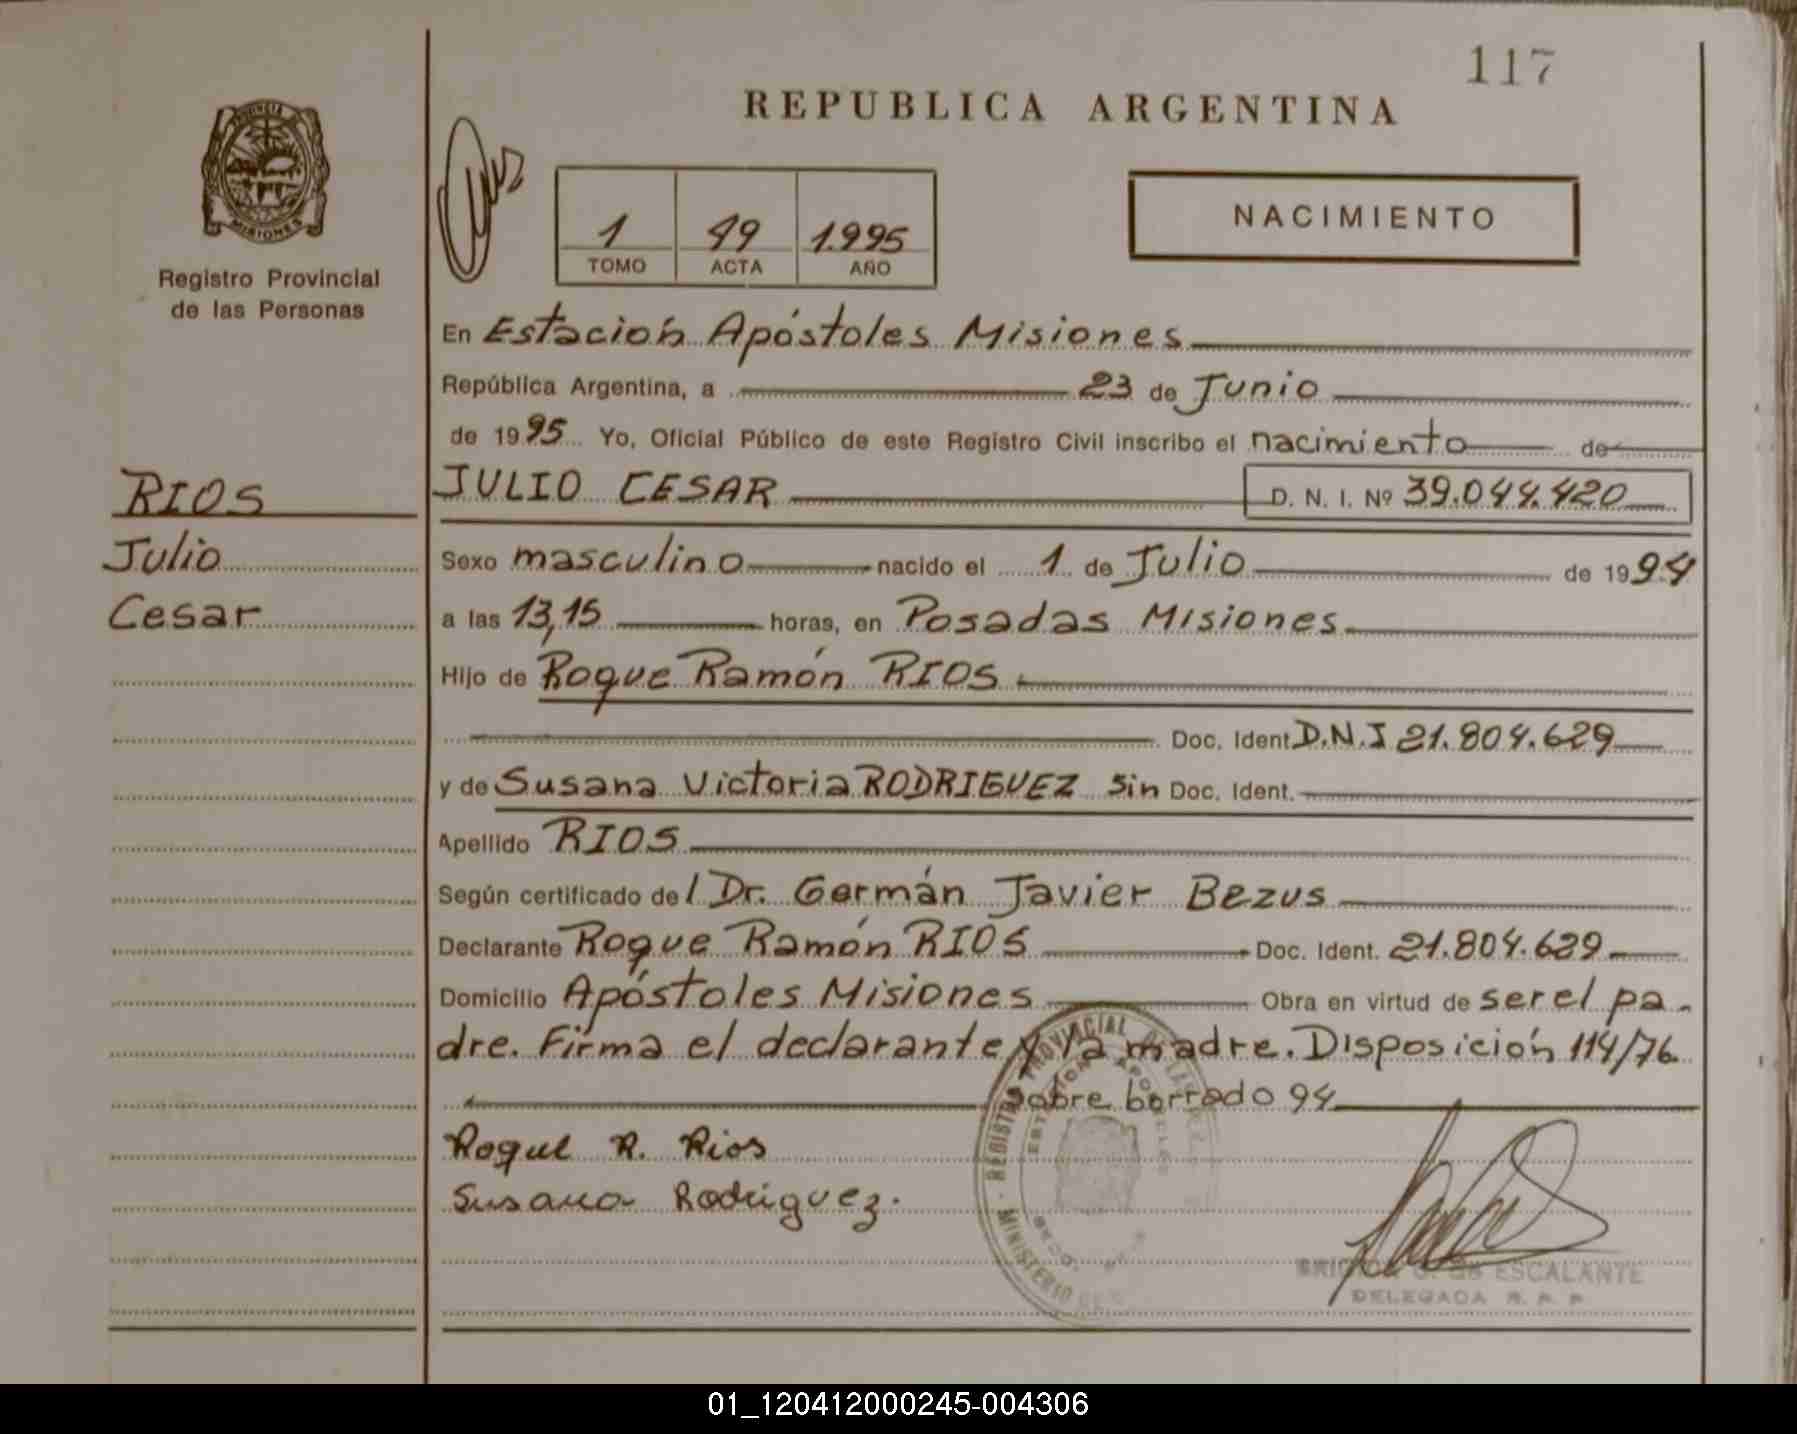 117
REPUBLICA ARGENTINA
PROVINCIA
MISIONES
Registro Provincial
de las Personas
1 49 1.995
TOMO ACTA AÑO
NACIMIENTO
En Estación Apóstoles Misiones
República Argentina, a 23 de Junio
de 1995 Yo, Oficial Público de este Registro Civil inscribo el nacimiento de
RIOS
Julio
Cesar
JULIO CESAR D. N. I. Nº 39.044.420
Sexo masculino nacido el 1 de Julio de 1994
a las 13,15 horas, en Posadas Misiones
Hijo de Roque Ramón RIOS
Doc. Ident. D.N.I 21.804.629
y de Susana Victoria RODRIGUEZ Sin Doc. Ident.
Apellido RIOS
Según certificado del Dr. Germán Javier Bezus
Declarante Roque Ramón RIOS Doc. Ident. 21.804.629
Domicilio Apóstoles Misiones Obra en virtud de ser el pa-
dre. Firma el declarante y la madre. Disposición 114/76
Sobre borrado 94
Roque R. Rios
Susana Rodriguez.
REGISTRO PROVINCIAL DE LAS
MINISTERIO DE
ESTACION APOSTOLES
ESCALANTE
DELEGADA R. P. P.
01_120412000245-004306